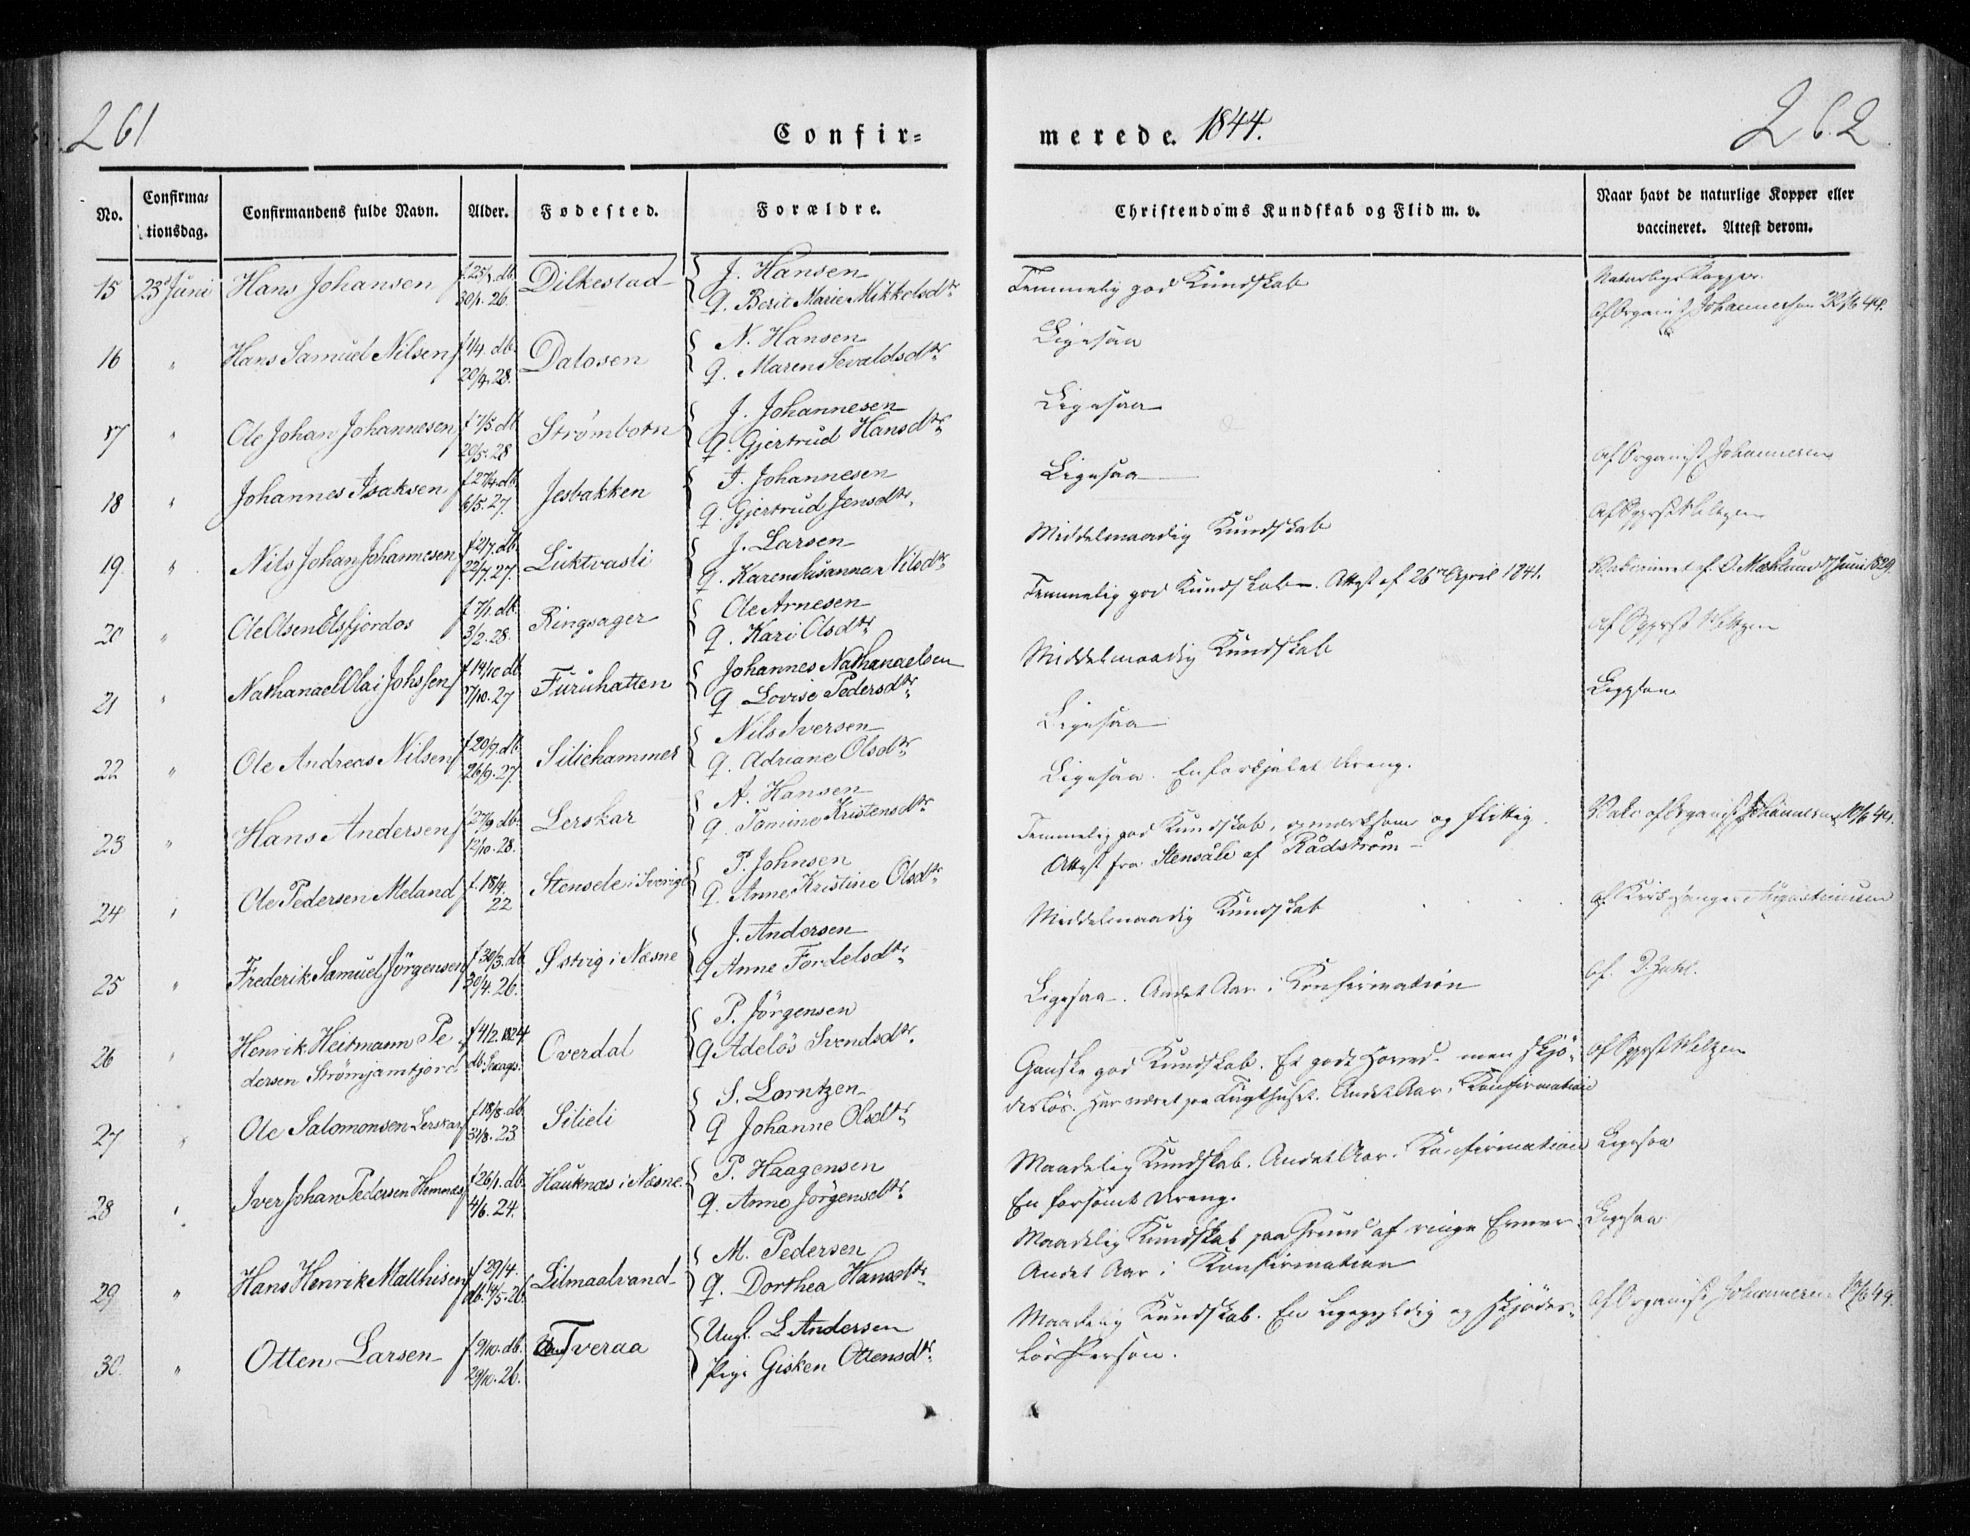 261
Confir=
merede. 1844.
262
No. Confirmationsdag. Confirmandens fulde Navn. Alder. Fødested. Forældre. Christendoms Kundskab og Flid m. v. Naar havt de naturlige Kopper eller vaccineret. Attest derom.
15 23 Juni Hans Johansen f. 25/1. db. 30/1. 26. Dilkestad J. Hansen
q. Berit Marie Mikkelsdtr. Temmelig god Kundskab Naturlige Kopper.
Af Organist Johannesen
16 " Hans Samuel Nilsen f 1/4. db. 20/4. 28. Dalosen N. Hansen
q. Maren Sevaldsdtr. Ligesaa
17 " Ole Johan Johannesen f 7/5. db 20/5. 28 Strømbotn J. Johannesen
q. Gjertrud Hansdtr. Ligesaa
18 " Johannes Isaksen f 27/4. db 6/5. 27. Jesbakken I. Johannesen
q. Gjertrud Jensdtr. Ligesaa Af Organist Johannesen
19. " Nils Johan Johannesen f 2/7. db. 22/7. 27. Luktvasli J. Larsen
q. Karen Susanna Nilsdtr. Middelmaadig Kundskab
20 " Ole Olsen Elsfjordos f 7/1. db. 3/2. 28. Ringsager Ole Arnesen
q. Kari Olsdtr. Temmelig god Kundskab. Attest af 26 April 1841. Vaccineret af Juni 1829.
21 " Nathanael Olai Johssen f 14/10 db 17/10. 27 Furuhatten Johannes Nathanaelsen
q Lovise Pedersdtr. Middelmaadig Kundskab
22 " Ole Andreas Nilsen f 20/7. db. 26/9. 27. Siliehammer Nils Iversen
q. Adriane Olsdtr. Ligesaa Ligesaa
23 " Hans Andersen f 27/9 db. 12/10. 28. Lerskar A. Hansen
q. Tomine Kristensdtr. Ligesaa. En forkjælet Dreng.
24 " Ole Pedersen Meland f. 18/4. 22 Stensele i Sverige P. Johnsen
q. Anne Kristine Olsdtr. Temmelig god Kundskab, opmærksom og flittig.
Attest fra Stensäle af Rådström Vakc. af Organist Johannesen 10/6 44.
25 " Frederik Samuel Jörgensen f 30/3. db 30/4. 26. Østvig i Næsne J. Andersen
q Anne Fordelsdtr. Middelmaadig Kundskab af Kirkesanger Augustinusen
26 " Henrik Heitmann Pe
dersen Strömjamtjord f 4/2. 1824 db. Overdal P. Jörgensen
q Adelös Svendsdtr. Ligesaa. Andet Aar i Konfirmation af
27 " Ole Salomonsen Lerskar f 18/8. db. 31/8. 23. Silieli S. Lorntzen
q Johanne Olsdtr. Ganske god Kundskab. Et godt Hoved. men skjö-
deslös. Har været paa Tugthuset. Andet Aar i Konfirmation
28 " Iver Johan Pedersen Hemnæs f 26/1. db. 4/6. 24. Hauknæs i Næsne P. Haagensen
q. Anne Jörgensdtr. Maadelig Kundskab. Andet Aar i Konfirmation
En forsömt Dreng. Ligesaa
29 " Hans Henrik Matthisen f 29/4. db. 14/5. 26. Lilmaalvand M. Pedersen
q. Dorthea Hansdtr. Maadelig Kundskab paa Grund af ringe Evner.
Andet Aar i Konfirmation Ligesaa
30 " Otten Larsen f. 9/10. db. 29/10. 26. Tveraa Ungk. L Andersen
Pige Gisken Ottensdtr. Maadelig Kundskab. En ligegyldig og skjödes-
lös Person. af Organist Johannesen